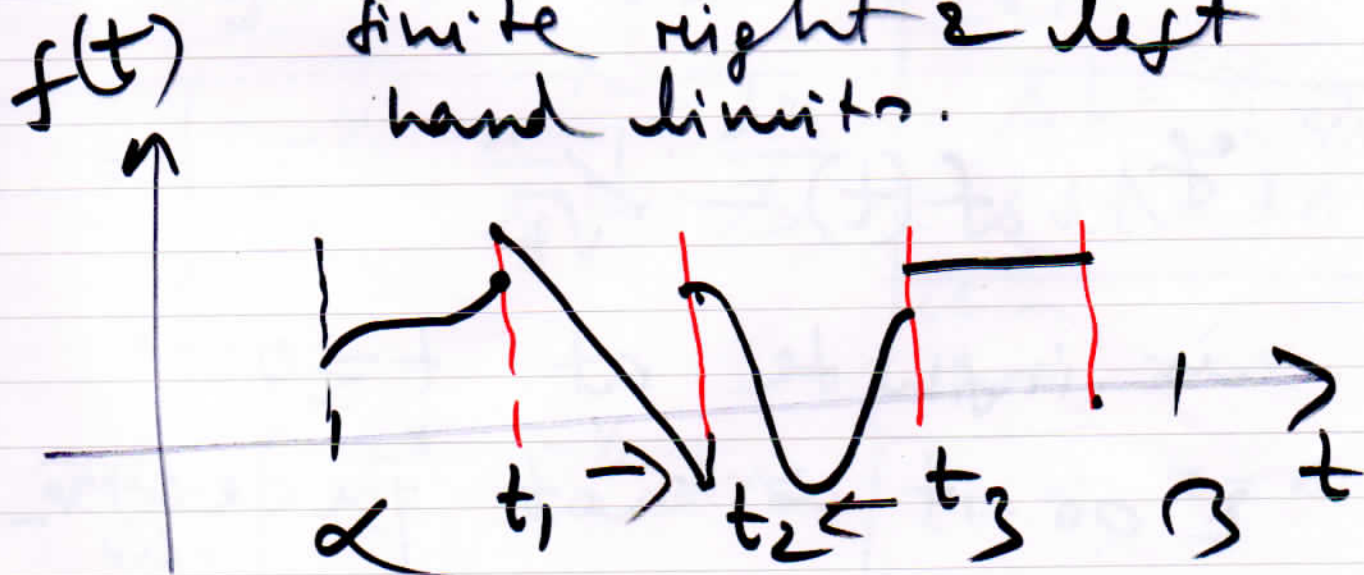 f(t) finite right & left
hand limits.
α t₁ → t₂ ← t₃ β t